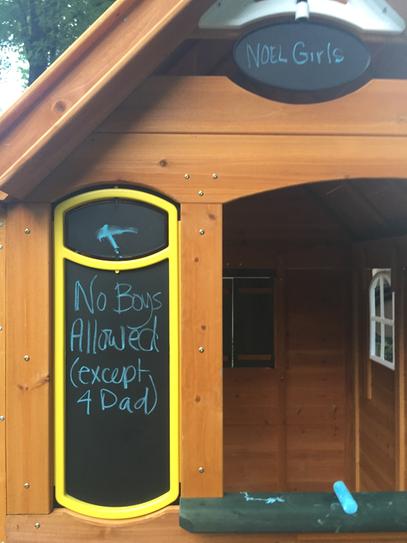 NOEL Girls
No Boys
Allowed
(except
4 Dad)